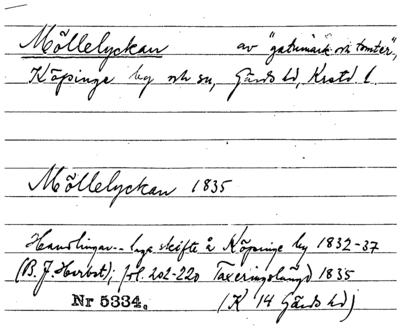 Möllelyckan av "gatumark och tomter",
Köpinge by och sn, Gärds hd, Krstd l.
Möllelyckan 1835
Handlingar .. laga skifte å Köpinge by 1832-37
(B. J. Herbst); fol. 202-220 Taxeringslängd 1835
Nr 5334. (K 14 Gärds hd)